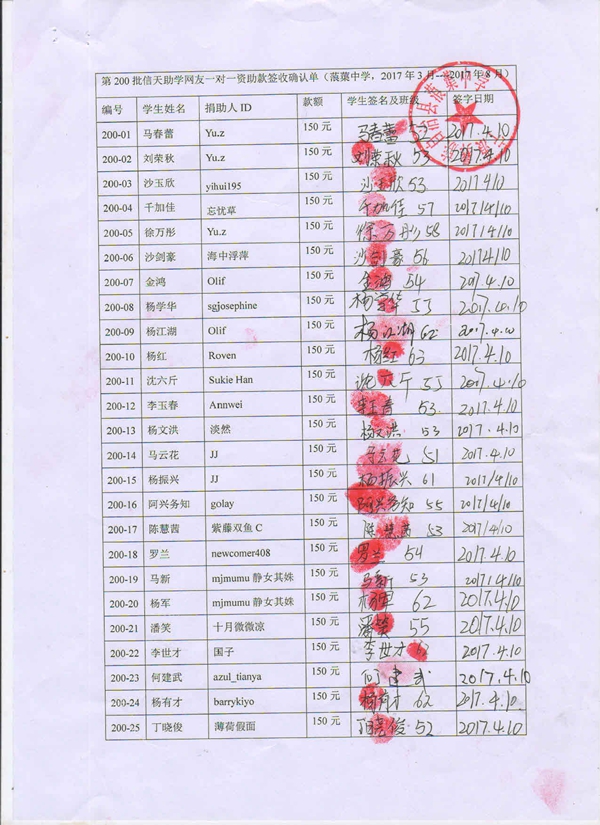 第 200 批信天助学网友一对一资助款签收确认单（蒗蕖中学，2017 年 3 月---2017 年 8 月）
编号 学生姓名 捐助人 ID 款额 学生签名及班级 签字日期
200-01 马春蕾 Yu.z 150 元 马春蕾 52 2017.4.10
200-02 刘荣秋 Yu.z 150 元 刘荣秋 53 2017.4.10
200-03 沙玉欣 yihui195 150 元 沙玉欣 53 2017.4.10
200-04 千加佳 忘忧草 150 元 千加佳 57 2017/4/10
200-05 徐万彤 Yu.z 150 元 徐万彤 58 2017/4/10
200-06 沙剑豪 海中浮萍 150 元 沙剑豪 56 2017.4.10
200-07 金鸿 Olif 150 元 金鸿 54 2017.4.10
200-08 杨学华 sgjosephine 150 元 杨学华 53 2017.4.10
200-09 杨江湖 Olif 150 元 杨江湖 62 2017.4.10
200-10 杨红 Roven 150 元 杨红 63 2017.4.10
200-11 沈六斤 Sukie Han 150 元 沈六斤 55 2017.4.10
200-12 李玉春 Annwei 150 元 李玉春 53. 2017.4.10
200-13 杨文洪 淡然 150 元 杨文洪 53 2017.4.10
200-14 马云花 JJ 150 元 马云花 51 2017.4.10
200-15 杨振兴 JJ 150 元 杨振兴 61 2017/4/10
200-16 阿兴务知 golay 150 元 阿兴务知 55 2017/4/10
200-17 陈慧茜 紫藤双鱼 C 150 元 陈慧茜 53 2017/4/10
200-18 罗兰 newcomer408 150 元 罗兰 54 2017.4.10
200-19 马新 mjmumu 静女其姝 150 元 马新 53 2017.4.10
200-20 杨军 mjmumu 静女其姝 150 元 杨军 62 2017.4.10
200-21 潘笑 十月微微凉 150 元 潘笑 55 2017.4.10
200-22 李世才 国子 150 元 李世才 62 2017.4.10
200-23 何建武 azul_tianya 150 元 何建武 2017.4.10
200-24 杨有才 barrykiyo 150 元 杨有才 62 2017.4.10
200-25 丁晓俊 薄荷假面 150 元 丁晓俊 52 2017.4.10